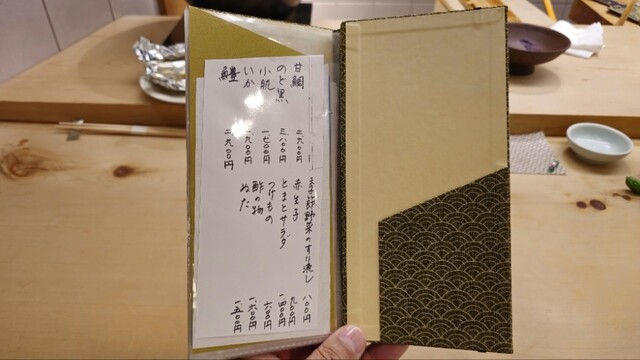 甘鯛 二、九〇〇円
のど黒 三、八〇〇円
小肌 一、七〇〇円
いか 一、九〇〇円
二、九〇〇円
季節野菜のすり流し 八〇〇円
赤生子 九〇〇円
とまとサラダ 一、四〇〇円
つけもの 六〇〇円
酢の物 一、六〇〇円
ぬた 一、五〇〇円